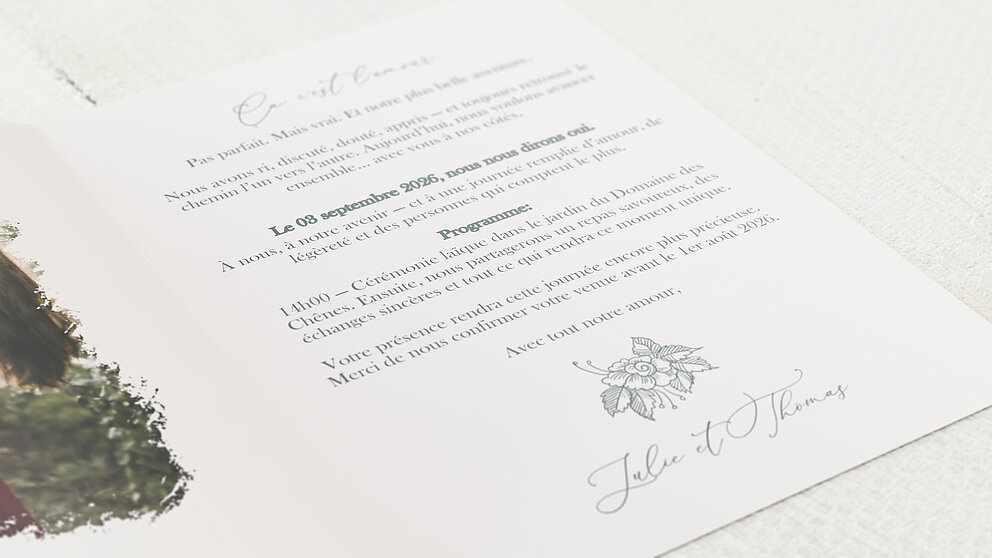 Ça, c'est l'amour
Pas parfait. Mais vrai. Et notre plus belle aventure.
Nous avons ri, discuté, douté, appris – et toujours retrouvé le
chemin l'un vers l'autre. Aujourd'hui, nous voulons avancer
ensemble... avec vous à nos côtés.
Le 08 septembre 2026, nous nous dirons oui.
À nous, à notre avenir – et à une journée remplie d'amour, de
légèreté et des personnes qui comptent le plus.
Programme:
14h00 – Cérémonie laïque dans le jardin du Domaine des
Chênes. Ensuite, nous partagerons un repas savoureux, des
échanges sincères et tout ce qui rendra ce moment unique.
Votre présence rendra cette journée encore plus précieuse.
Merci de nous confirmer votre venue avant le 1er août 2026.
Avec tout notre amour,
Julie et Thomas